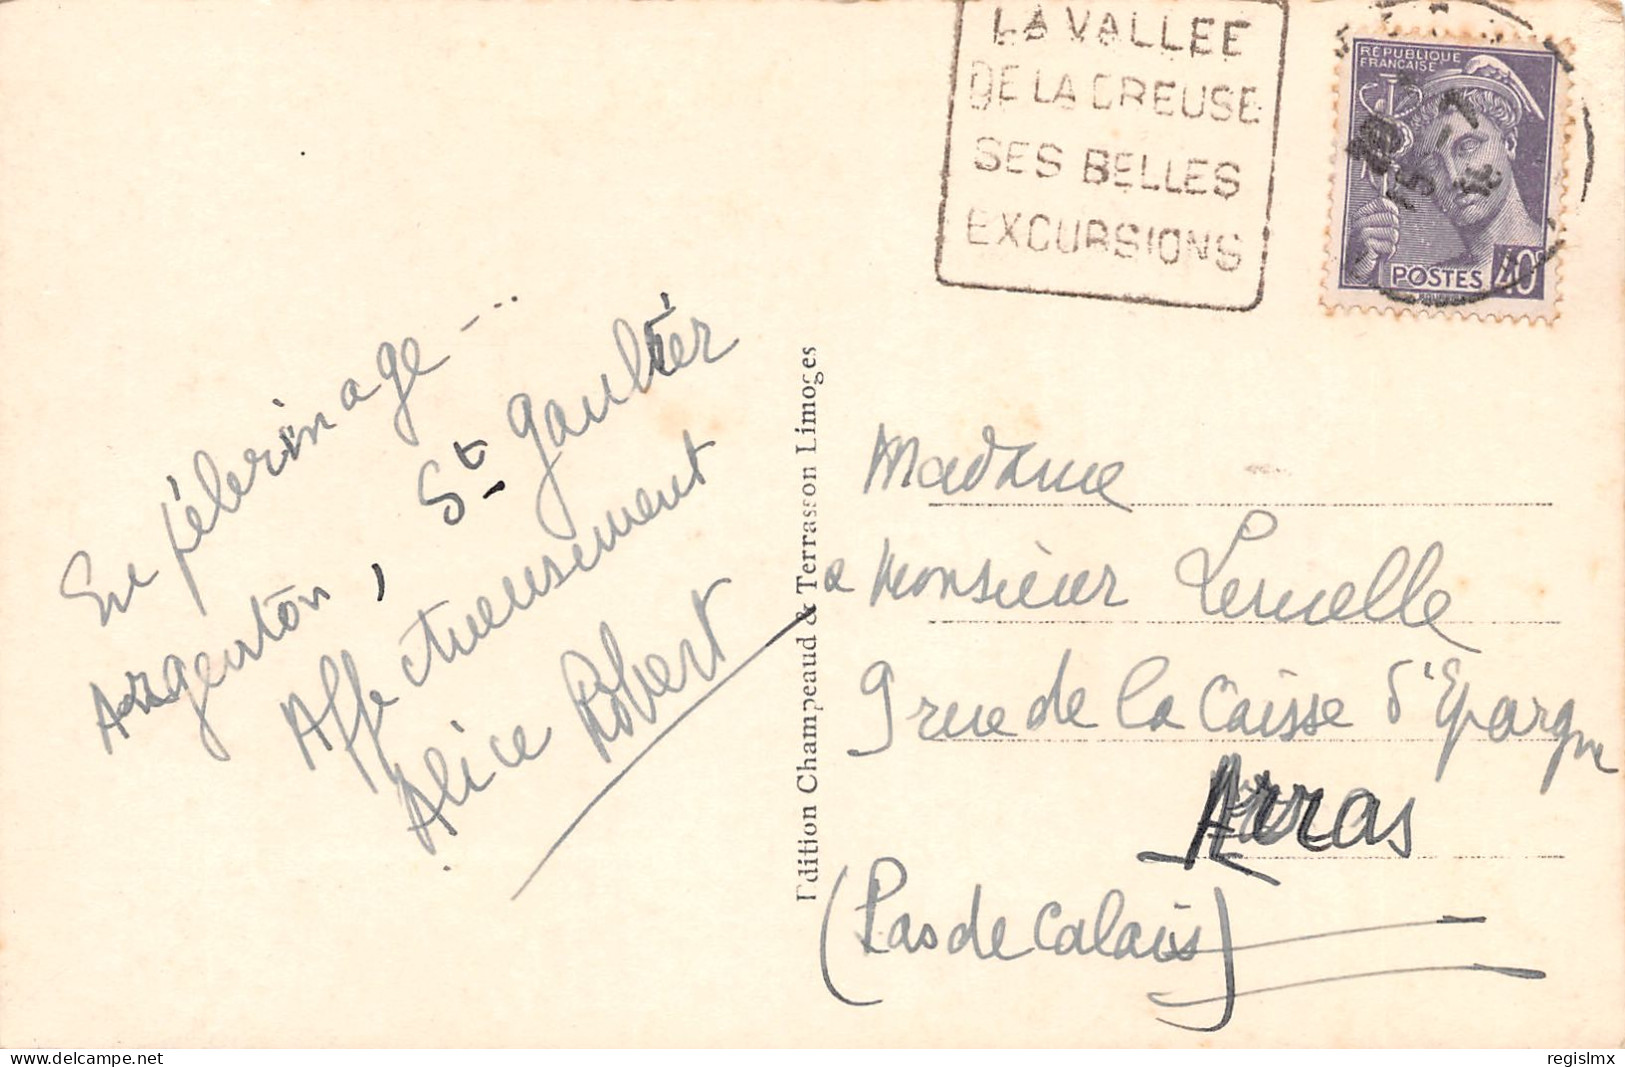 LA VALLEE
DE LA CREUSE
SES BELLES
EXCURSIONS
RÉPUBLIQUE
FRANÇAISE
POSTES 40c
En pélerinage ---
Argenton, St Gaultier
Affectueusement
Alice Robert
Edition Champeaud & Terrasson Limoges
Madame
& Monsieur Leruelle
9 rue de la Caisse d'Epargne
Arras
(Pas de Calais)
delcampe.net
regislmx